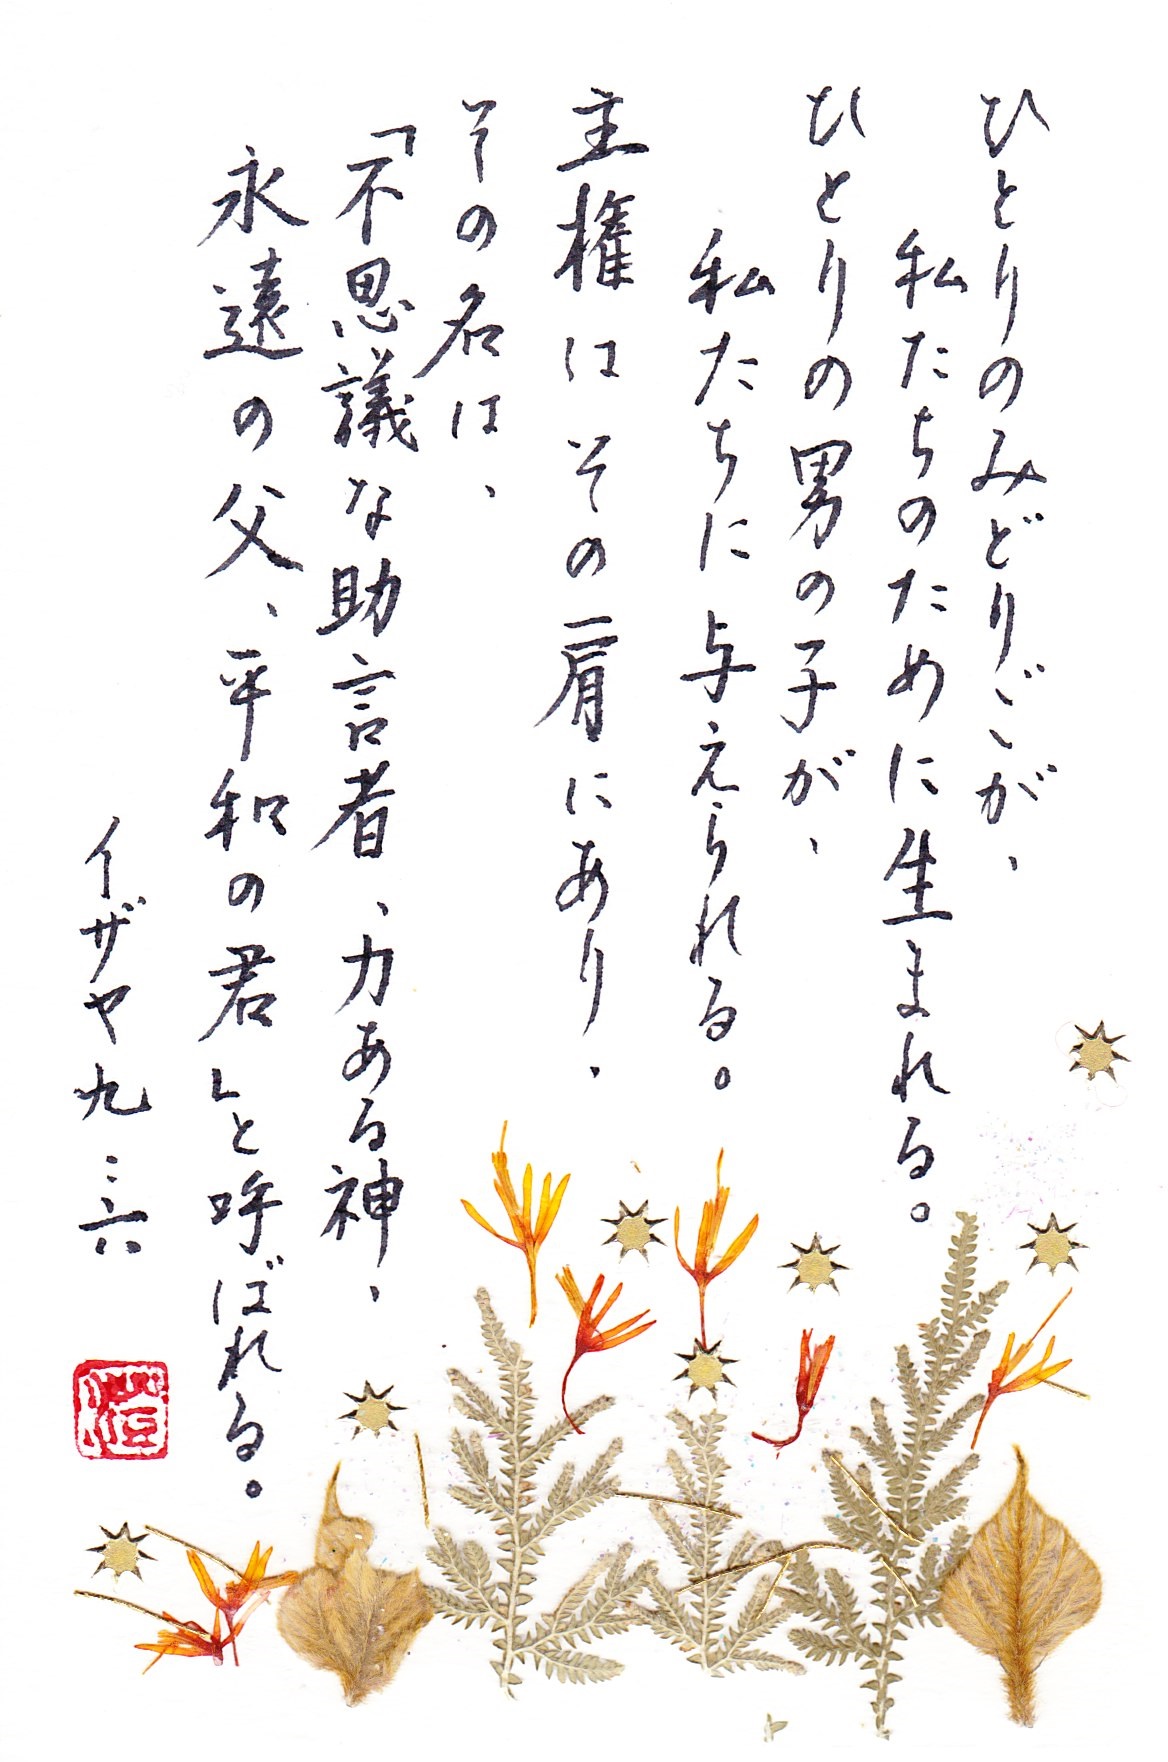 ひとりのみどりごが、
私たちのために生まれる。
ひとりの男の子が、
私たちに与えられる。
主権はその肩にあり、
その名は、
「不思議な助言者、力ある神、
永遠の父、平和の君」と呼ばれる。
イザヤ九:六